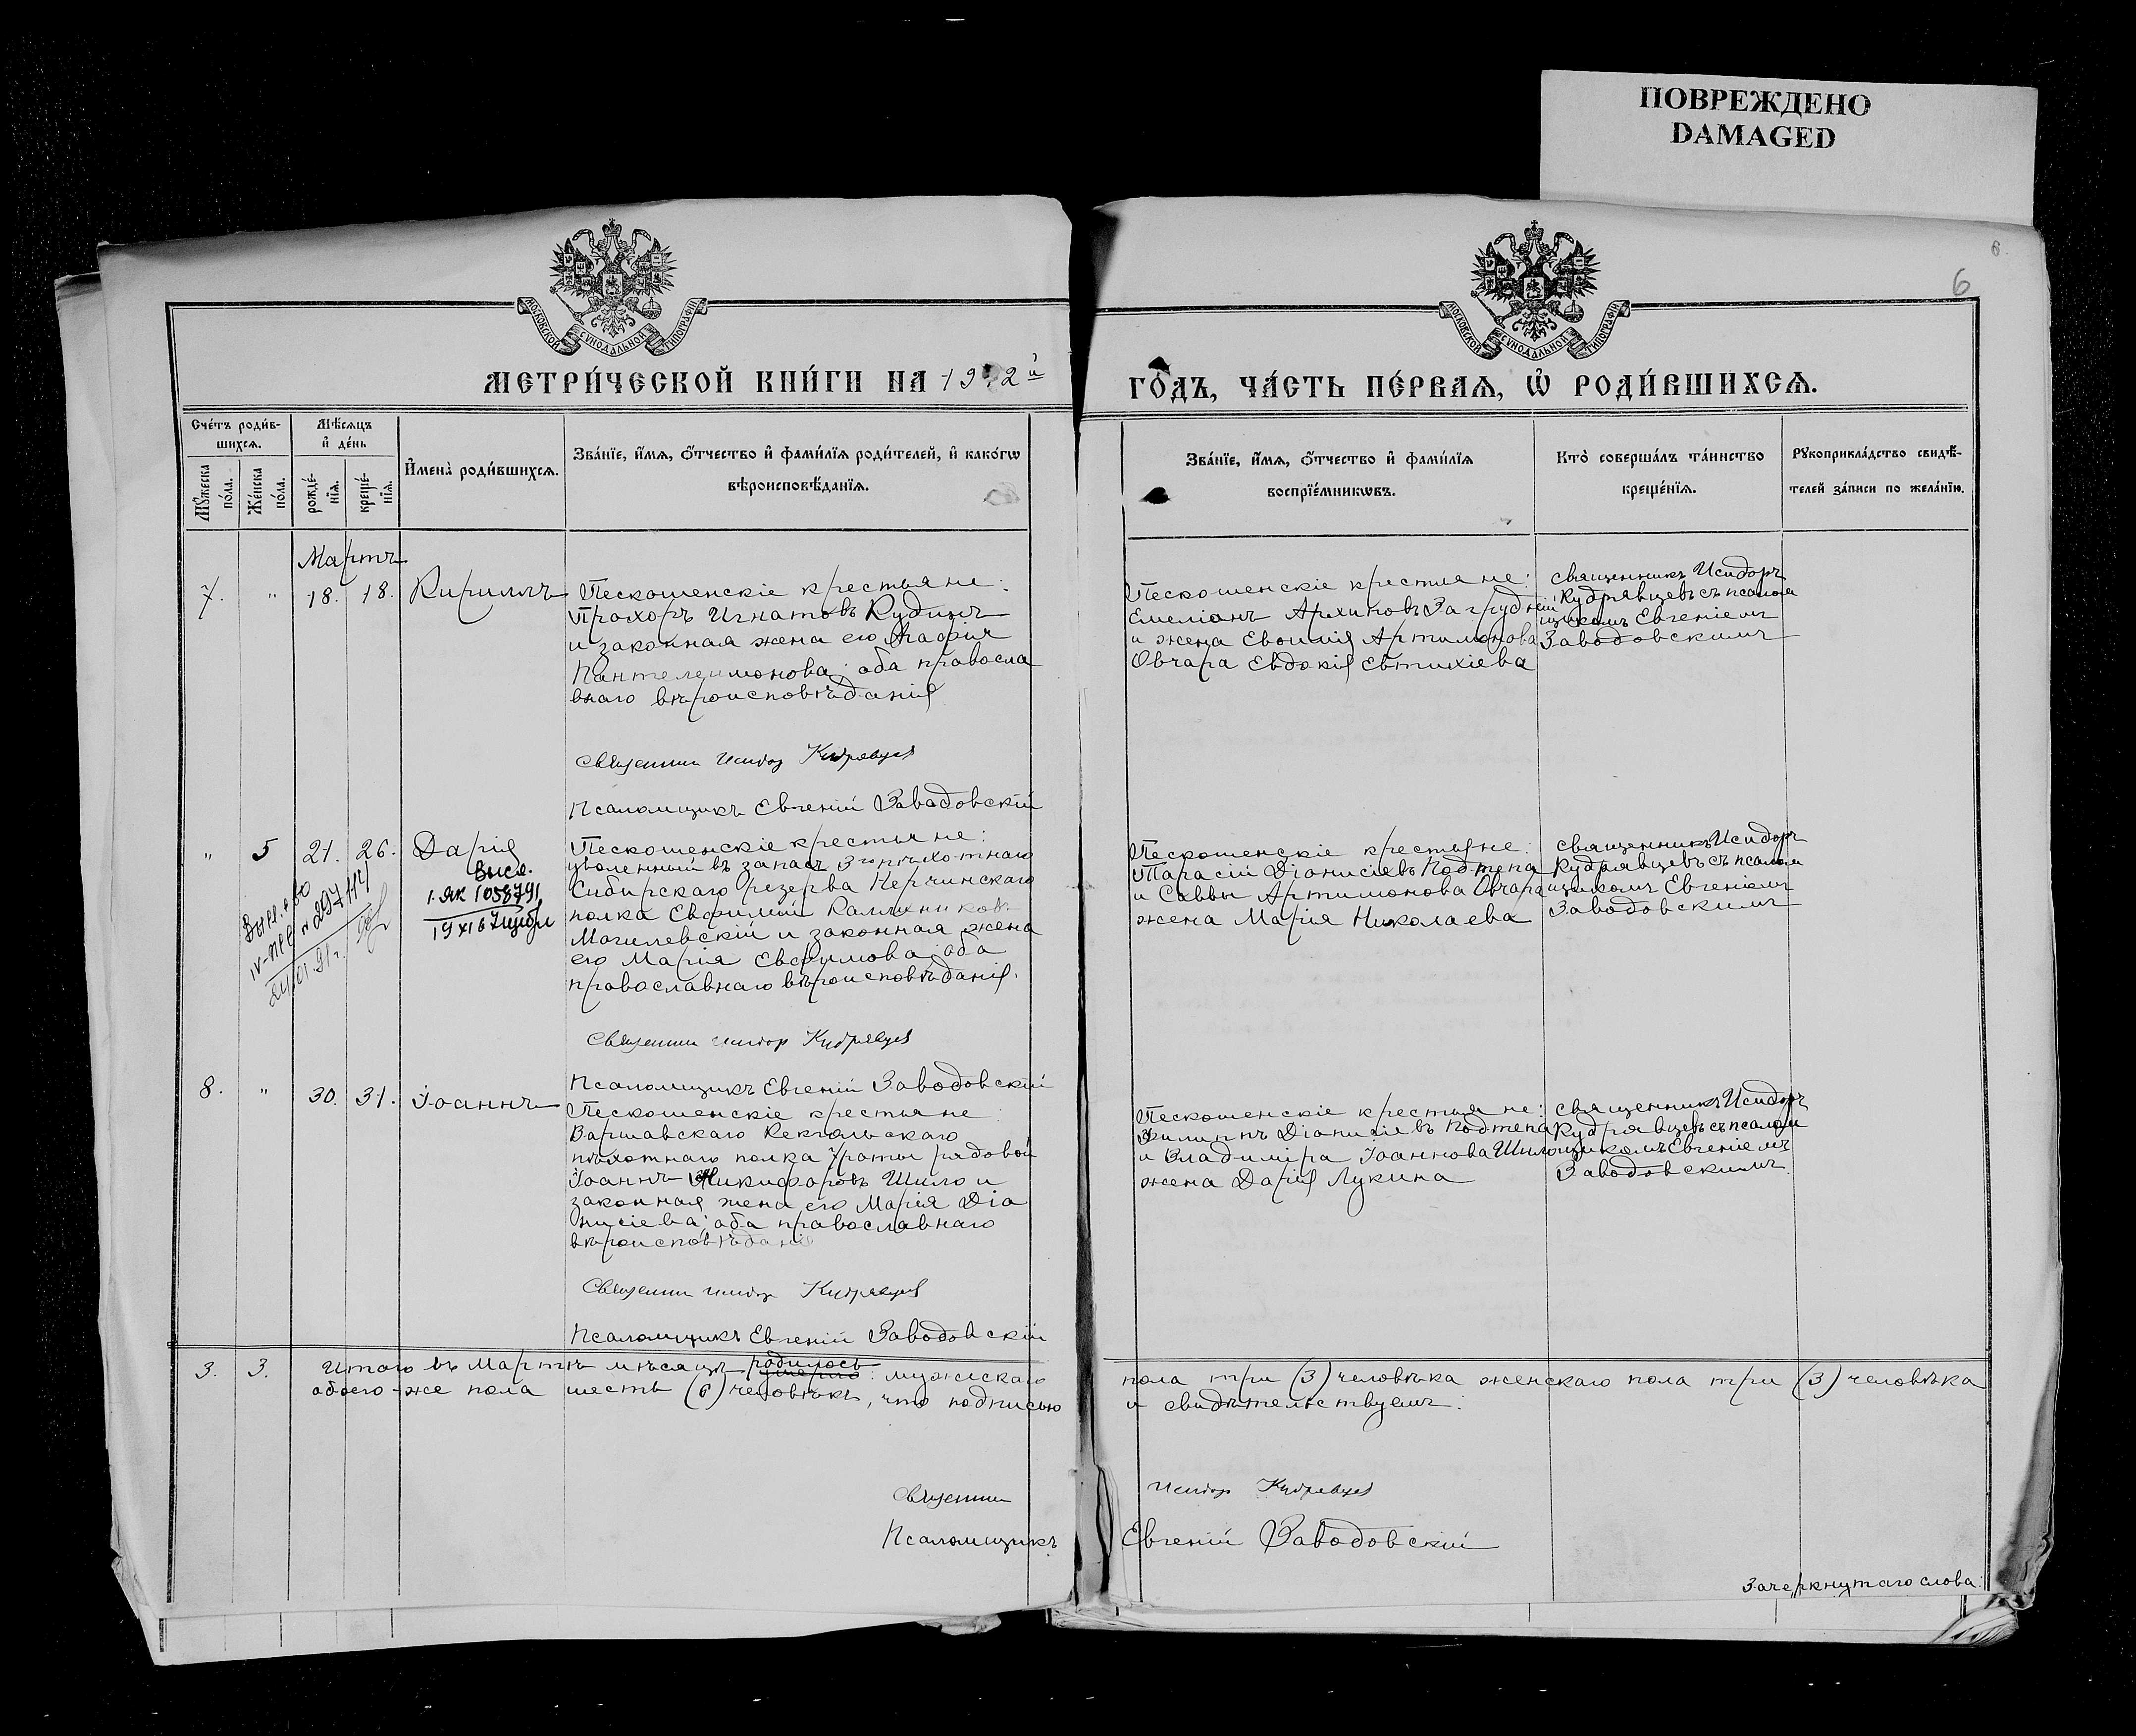 ПОВРЕЖДЕНО
DAMAGED
6.
6
МОСКОВСКОЙ СѴНОДАЛЬНОЙ ТИПОГРАФІИ
МОСКОВСКОЙ СѴНОДАЛЬНОЙ ТИПОГРАФІИ
МЕТРИ́ЧЕСКОЙ КНИ́ГИ НА
ГО́ДЪ, ЧА́СТЬ ПЕ́РВАЯ, Ѡ РОДИ́ВШИХСЯ.
Сче́тъ роди́в-
шихся.
Мѣ́сяцъ
и҆ де́нь
Мꙋ́жеска
по́ла.
Же́нска
по́ла.
рожде́-
нїя.
креще́-
нїя.
И҆мена̀ роди́вшихся.
Зва́нїе, и҆́мя, о҆́тчество и҆ фами́лїя роди́телей, и҆ како́гѡ
вѣроисповѣ́данїя.
Зва́нїе, и҆́мя, о҆́тчество и҆ фами́лїя
воспрїе́мникѡвъ.
Кто̀ соверша́лъ та́инство
креще́нїя.
Рꙋкоприкла́дство свидѣ́-
телей за́писи по жела́нїю.
Мартъ
7. " 18. 18. Кириллъ
Пескошенскіе крестьяне:
Прохоръ Игнатовъ Кудинъ
и законная жена его Агафія
Пантелеимонова; оба правосла
внаго вѣроисповѣданія
Священник Исидор Кудрявцев
Псаломщикъ Евгеній Заводовскій
Пескошенскіе крестьяне:
Емеліанъ Архиповъ Загрудній
и жена Евфимія Артимонова
Овчара Евдокія Евтихіева
священникъ Исидоръ
Кудрявцевъ съ псалом
щикомъ Евгеніемъ
Заводовскимъ
" 5 21. 26. Дарія
Пескошенскіе крестьяне:
уволенный въ запасъ 3го пѣхотнаго
Сибирскаго резерва Нерчинскаго
полка Евфимій
Могилевскій и законная жена
его Марія Евфимова; оба
православнаго вѣроисповѣданія.
Священник Исидор Кудрявцев
Псаломщикъ Евгеній Заводовскій
1058791
297114
Пескошенскіе крестьяне:
Тарасій Діонисіевъ Подтепа
и Саввы Артимонова Овчара
жена Марія Николаева
священникъ Исидоръ
Кудрявцевъ съ псалом
щикомъ Евгеніемъ
Заводовскимъ
8. " 30. 31. Іоаннъ
Пескошенскіе крестьяне:
Варшавскаго Кексгольскаго
пѣхотнаго полка 7 роты рядовой
Іоаннъ Никифоровъ Шило и
законная жена его Марія Діо
нисіева; оба православнаго
вѣроисповѣданія
Священник Исидор Кудрявцев
Псаломщикъ Евгеній Заводовскій
Пескошенскіе крестьяне:
Филиппъ Діонисіевъ Подтепа
и Владиміра Іоаннова Шило
жена Дарія Лукина
священникъ Исидоръ
Кудрявцевъ съ псалом
щикомъ Евгеніемъ
Заводовскимъ.
3. 3. Итого въ Мартѣ мѣсяцѣ родилось умерло: мужескаго пола три (3) человѣка женскаго пола три (3) человѣка
обоего-же пола шесть (6) человѣкъ, что подписью и свидѣтельствуемъ:
Священник Исидор Кудрявцев
Псаломщикъ Евгеній Заводовскій
Зачеркнутаго слова: